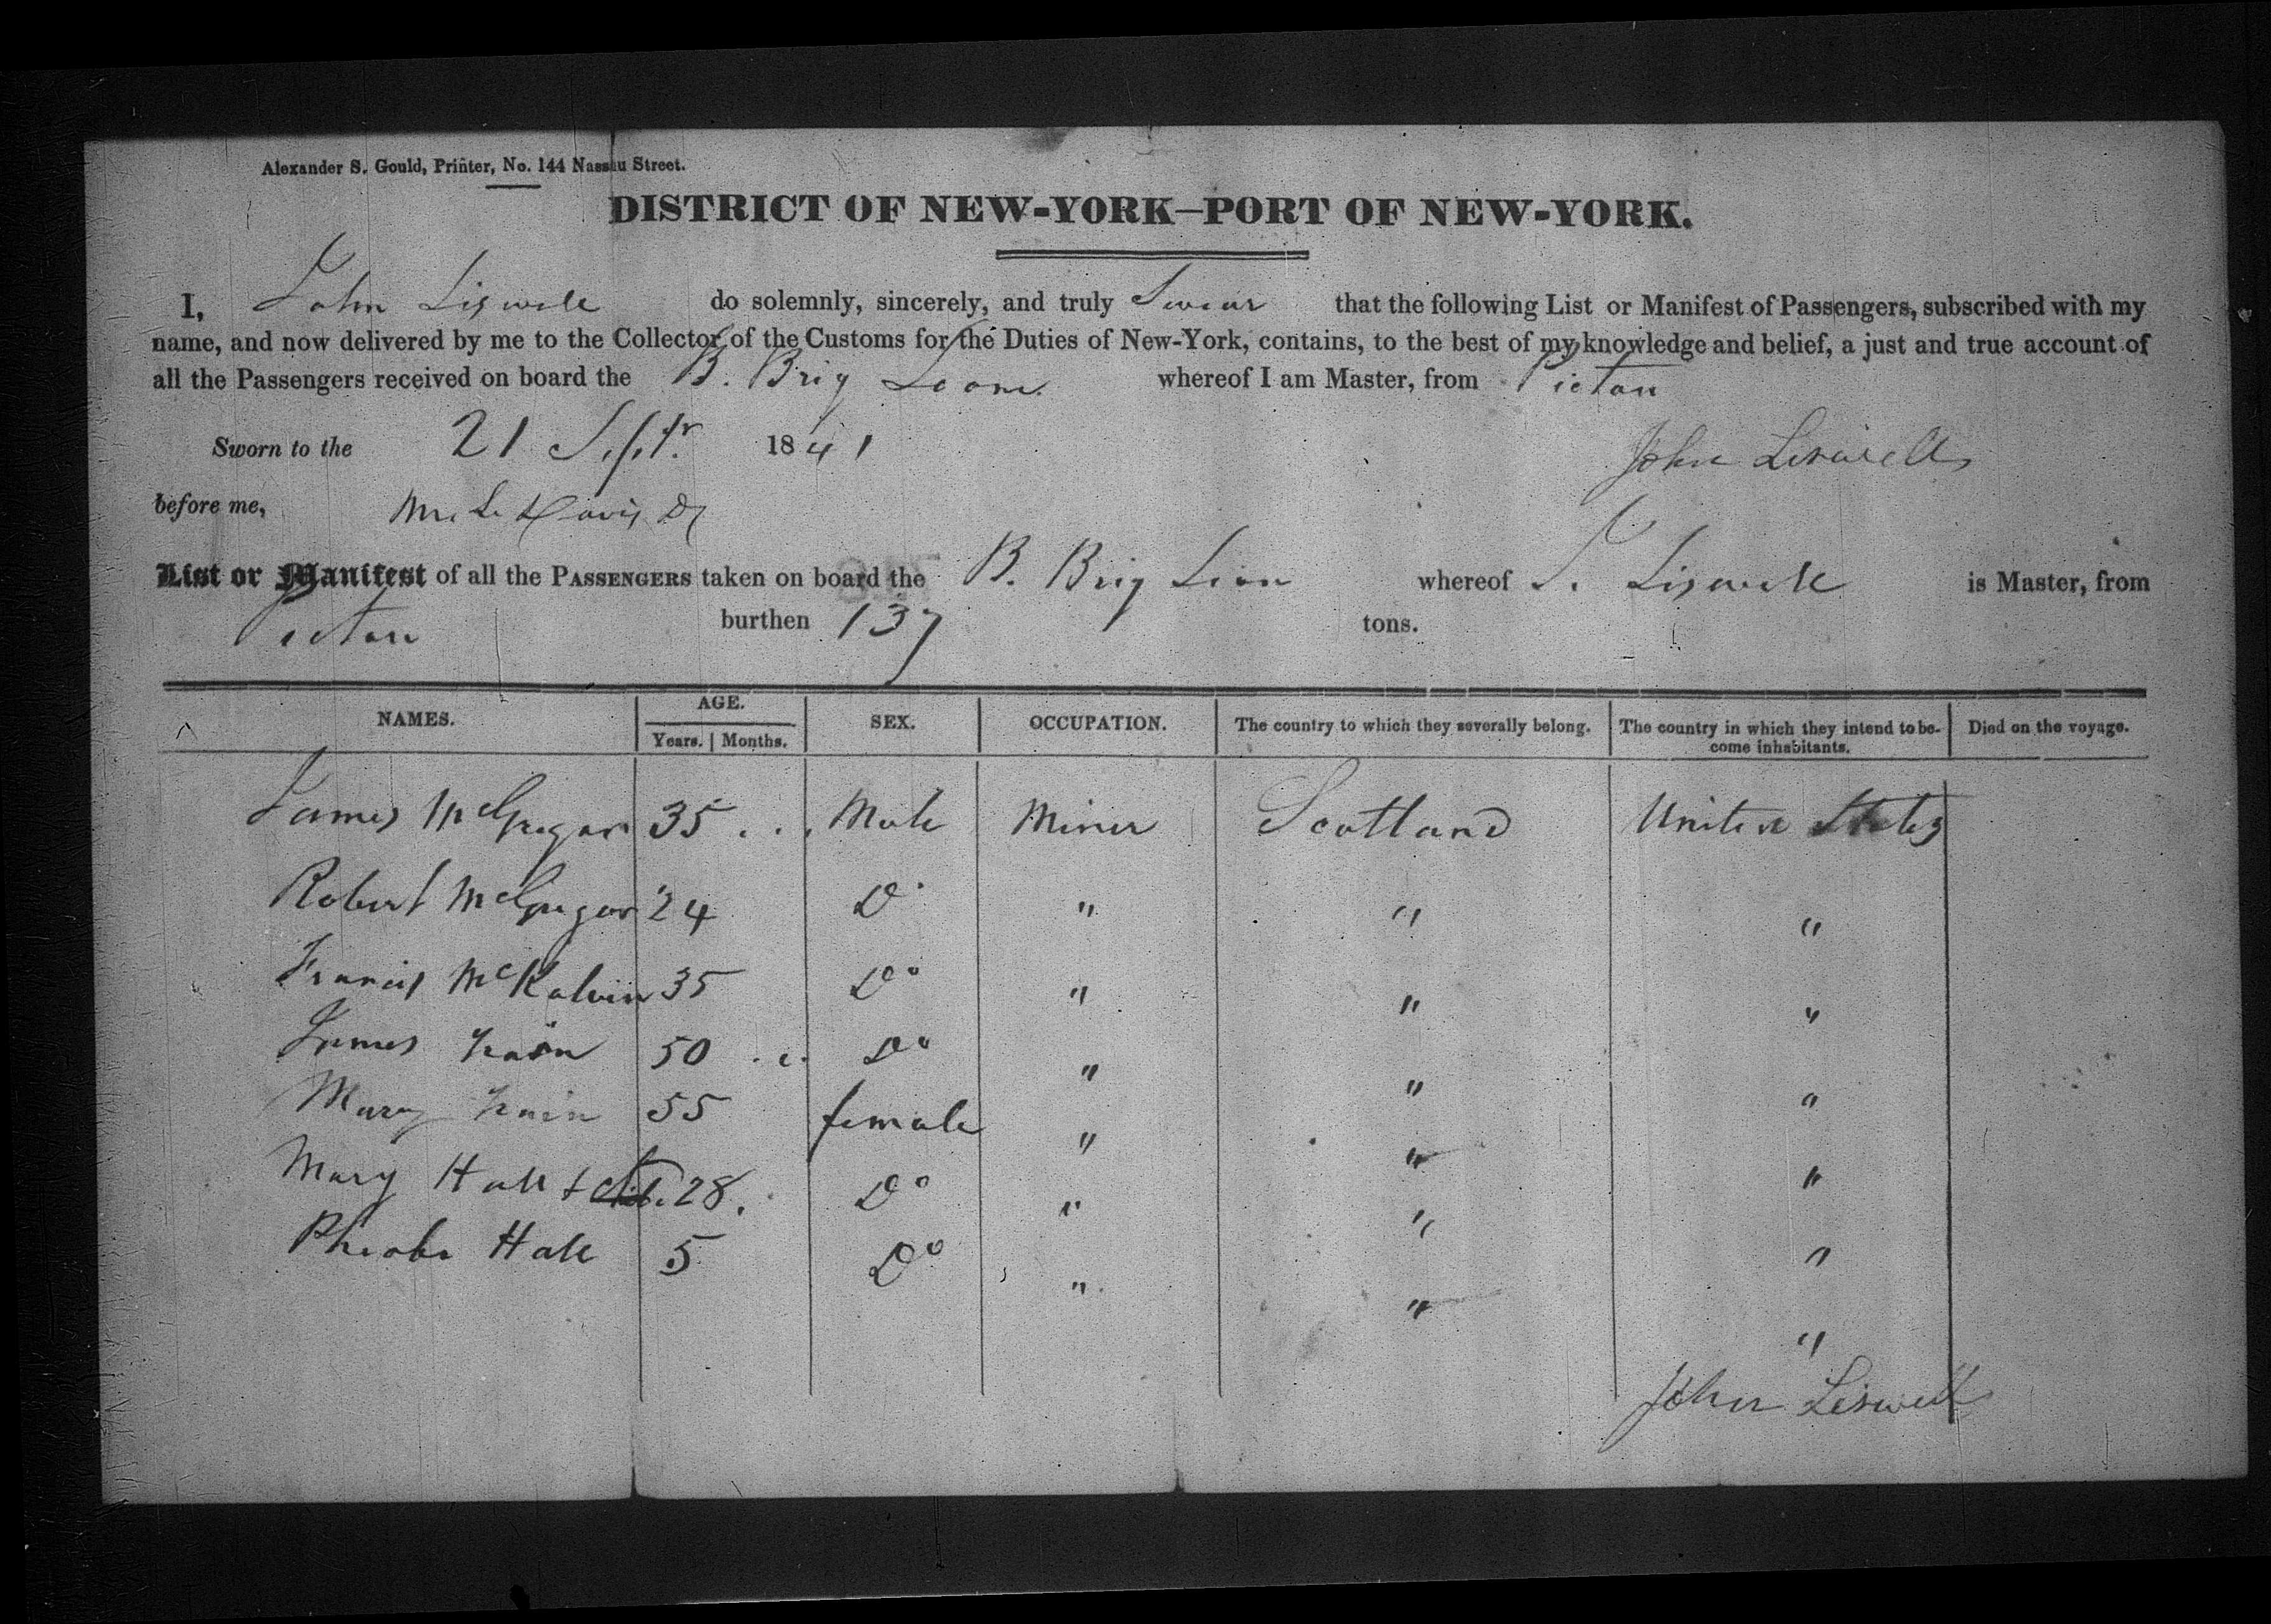 Alexander S. Gould, Printer, No. 144 Nassau Street.
DISTRICT OF NEW-YORK–PORT OF NEW-YORK.
I, John Liswell do solemnly, sincerely, and truly Swear that the following List or Manifest of Passengers, subscribed with my
name, and now delivered by me to the Collector of the Customs for the Duties of New-York, contains, to the best of my knowledge and belief, a just and true account of
all the Passengers received on board the B. Brig whereof I am Master, from Pictou
Sworn to the 21 Septr. 1841 John Liswell
before me, M. L. Davis
List or Manifest of all the PASSENGERS taken on board the B. Brig whereof J. Liswell is Master, from
Pictou burthen 137 tons.
NAMES. AGE. SEX. OCCUPATION. The country to which they severally belong. The country in which they intend to be- Died on the voyage.
Years. Months. come inhabitants.
James McGregor 35 Male Miner Scotland United States
Robert McGregor 24 Do " " "
Francis McKalvin 35 Do " " "
James 50 Do " " "
Mary 55 female " " "
Mary Hall 28. Do " " "
Pheobe Hall 5 Do " " "
John Liswell